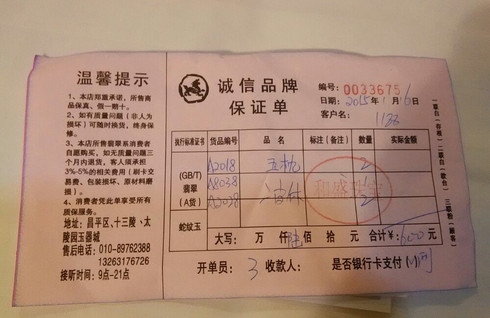 温馨提示
1、本店郑重承诺,所售商
品保真,假一赔十。
2、如有质量问题(非人为
损坏)可随时换货,终身保
修。
3、本店所售翡翠系消费者
自愿购买,如无质量问题三
个月内退货,客人须承担
3%-5%的相关费用(刷卡交
易费、包装损坏、原材料磨
损)。
4、消费者凭此单享受所有
质保服务。
地址:昌平区、十三陵、太
陵园玉器城
售后电话:010-89762388
13263176726
接听时间:9点-21点
诚信品牌
保证单
编号:0033675
日期:2015年1月6日
客户名:1138
执行标准证书 货品编号 品名 标注(备注) 数量 实际金额
(GB/T)
翡翠
(A货)
A2018 2
A8038
A2038 2
蛇纹玉
大写: 万 仟 陆 佰 拾 元 合计¥:600元
开单员:3 收款人: 是否银行卡支付